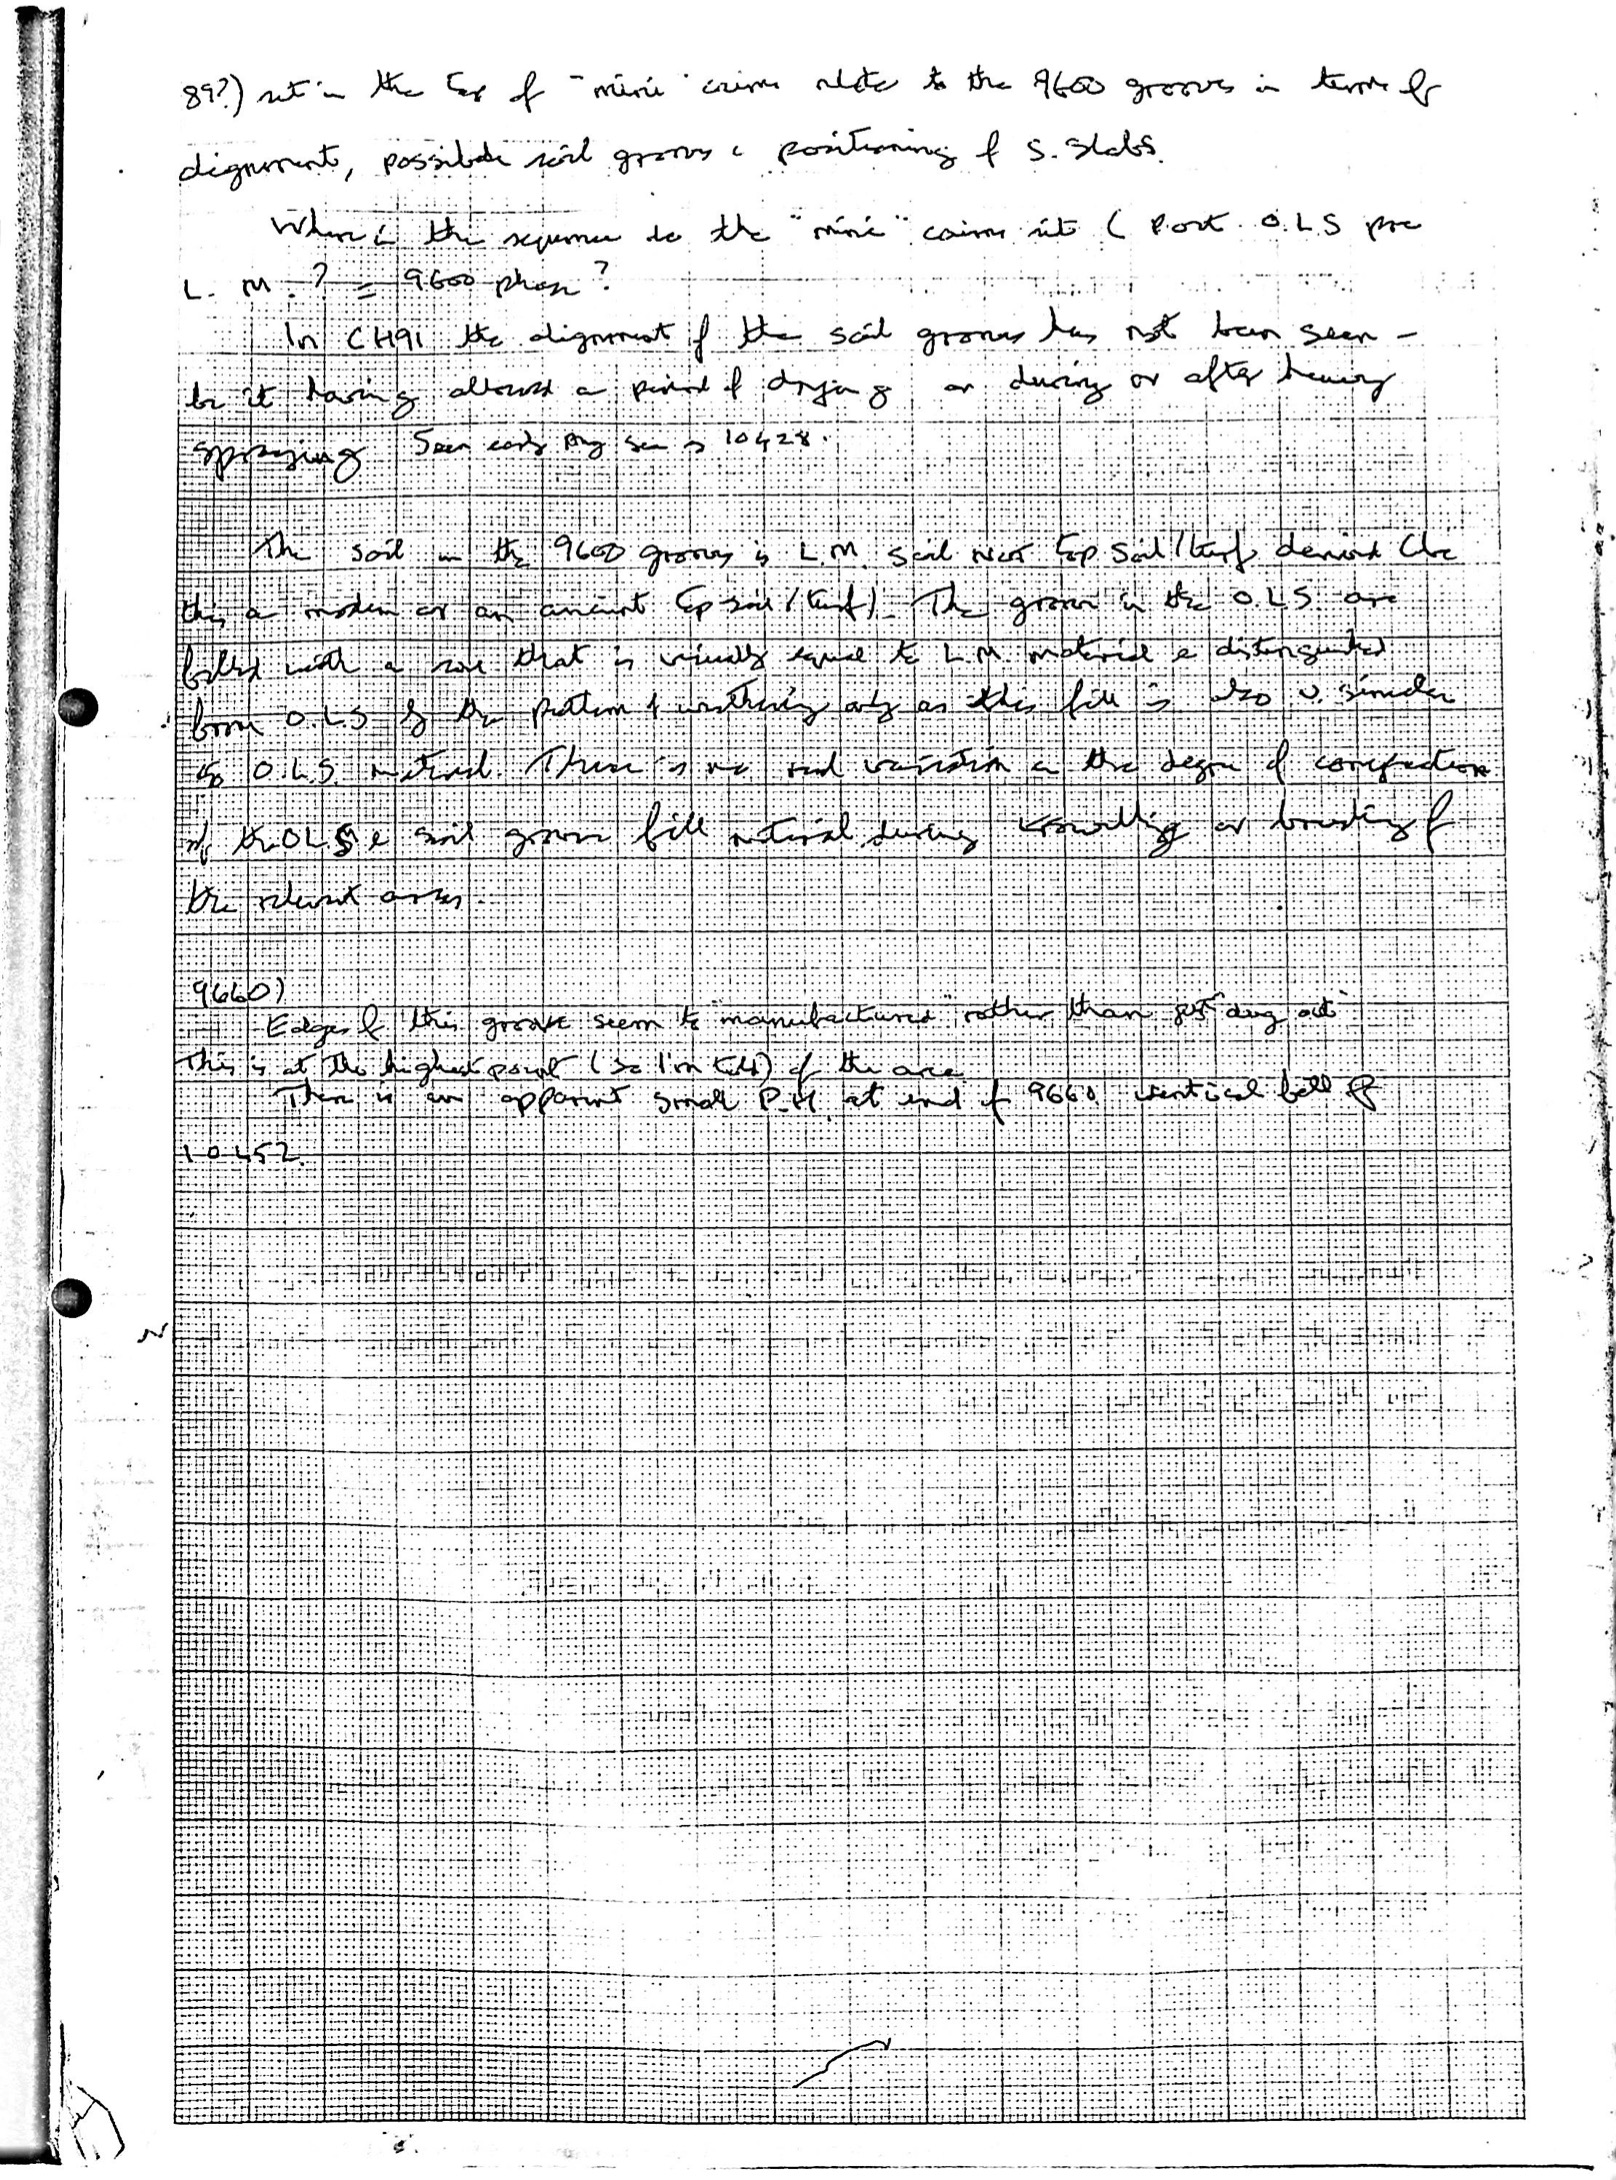 89?) set in the top of "mini" cairns relate to the 9600 grooves in terms of
alignment, possible soil grooves & positioning of S. Slabs.
Where in the sequence do the "mini" cairns sit (Post O.L.S pre
L. M. ? = 9600 phase?
In CH91 the alignment of the soil grooves has not been seen -
be it having allowed a period of drying or during or after heavy
spraying Seen early Aug see 10428.
The soil in the 9600 grooves is L.M. soil not top soil/turf derived (be
this a modern or an ancient top soil/turf). The grooves in the O.L.S. are
filled with a soil that is visually equal to L.M. material & distinguished
from O.L.S by the pattern of weathering only as this fill is also v. similar
to O.L.S. material. There is no real variation in the degree of compaction
of the OLS & soil groove fill material during trowelling or brushing of
the relevant areas.
9660)
Edges of this groove seem to "manufactured" rather than just "dug out"
This is at the highest point ( 1m ) of the area
There is an apparent small P.H. at end of 9660 identical fill of
10452.
N